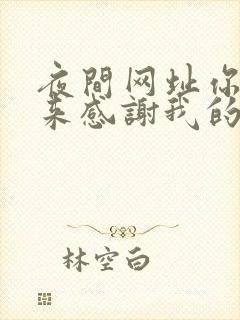 夜間网址你
来感謝我的
林空白